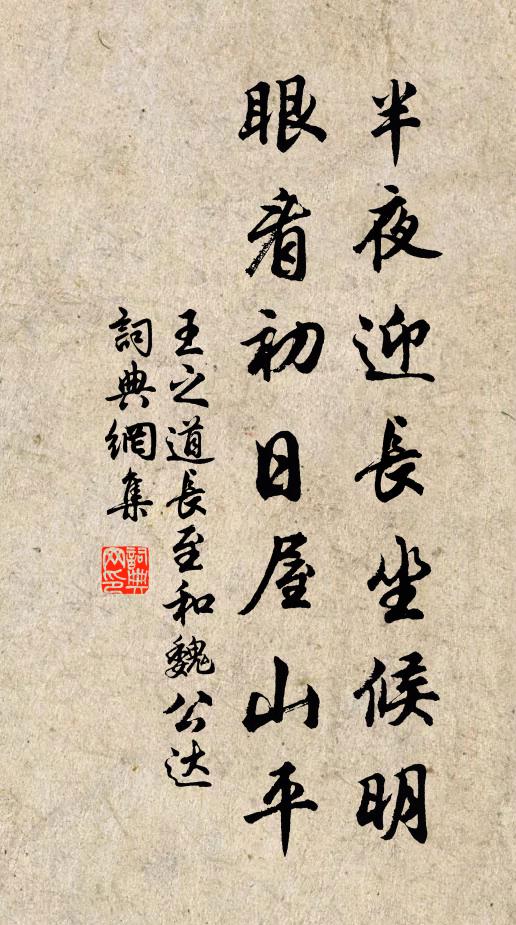 半夜迎長坐候明
眼看初日屋山平
王之道長至和魏公达
詞典網集
詞典网印